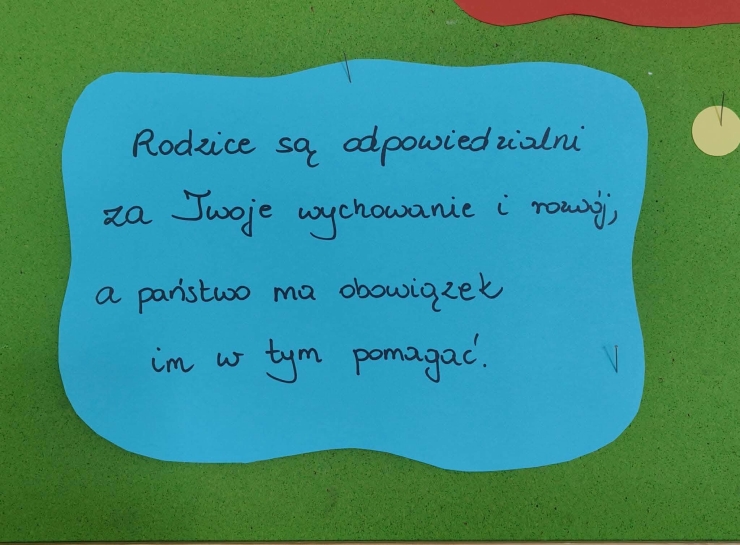 Rodzice są odpowiedzialni
za Twoje wychowanie i rozwój,
a państwo ma obowiązek
im w tym pomagać.